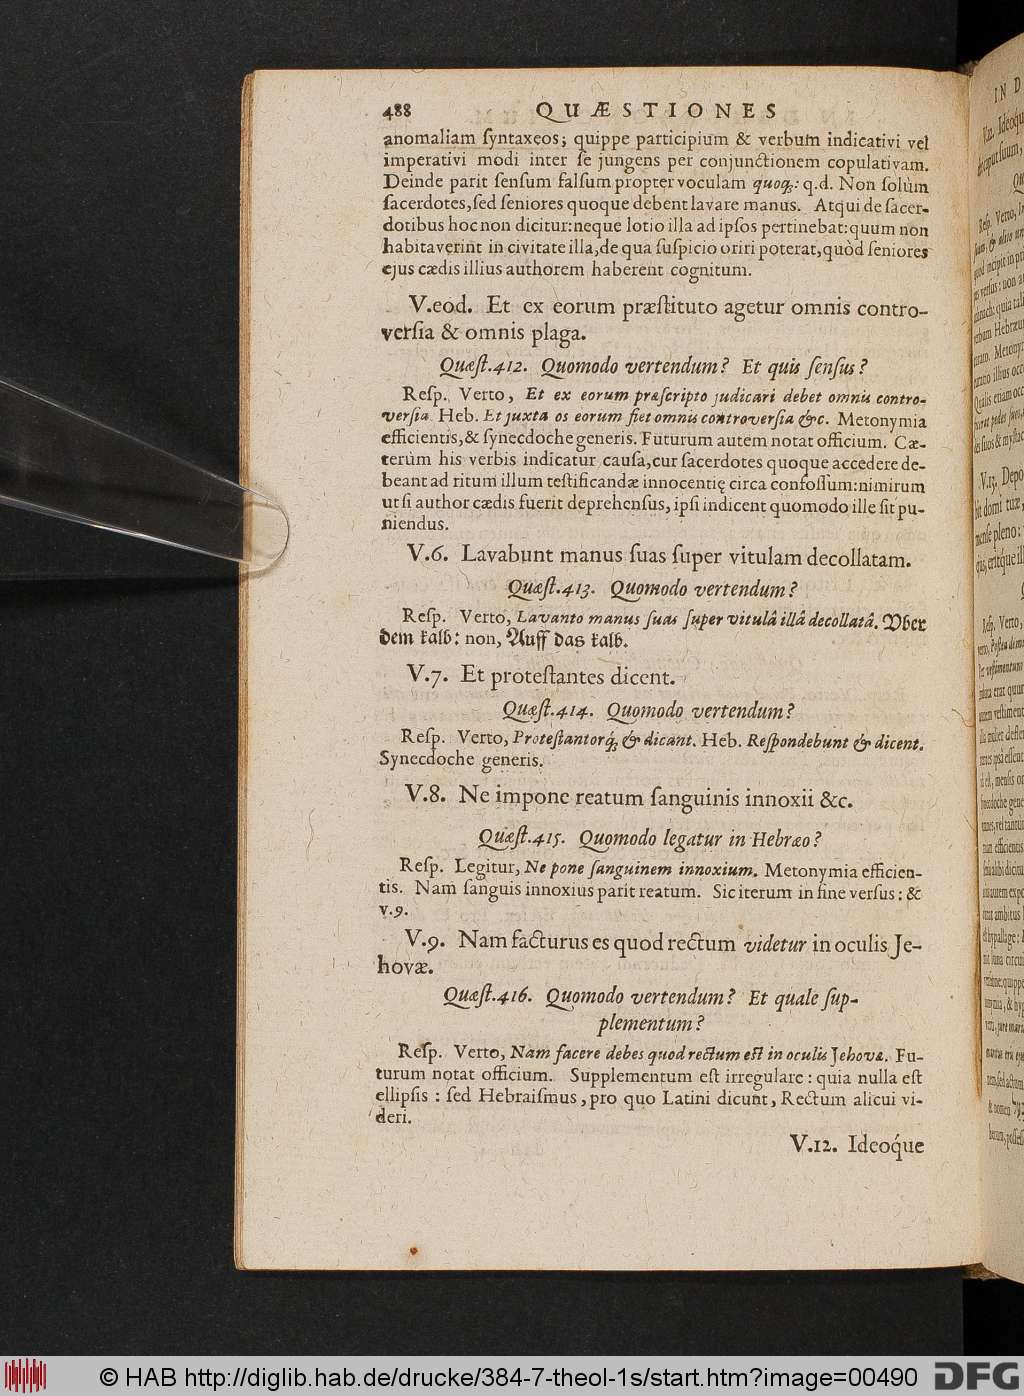 488 QUÆSTIONES
anomaliam ſyntaxeos; quippe participium & verbum indicativi vel
imperativi modi inter ſe jungens per conjunctionem copulativam.
Deinde parit ſenſum falſum propter voculam quoq;: q.d. Non ſolùm
ſacerdotes, ſed ſeniores quoque debent lavare manus. Atqui de ſacer-
dotibus hoc non dicitur: neque lotio illa ad ipſos pertinebat: quum non
habitaverint in civitate illa, de qua ſuſpicio oriri poterat, quòd ſeniores
ejus cædis illius authorem haberent cognitum.
V.eod. Et ex eorum præſtituto agetur omnis contro-
verſia & omnis plaga.
Quæſt.412. Quomodo vertendum? Et quis ſenſus?
Reſp. Verto, Et ex eorum præſcripto judicari debet omnis contro-
verſia. Heb. Et juxta os eorum fiet omnis controverſia &c. Metonymia
efficientis, & ſynecdoche generis. Futurum autem notat officium. Cæ-
terùm his verbis indicatur cauſa, cur ſacerdotes quoque accedere de-
beant ad ritum illum teſtificandæ innocentię circa confoſſum: nimirum
ut ſi author cædis fuerit deprehenſus, ipſi indicent quomodo ille ſit pu-
niendus.
V.6. Lavabunt manus ſuas ſuper vitulam decollatam.
Quæſt.413. Quomodo vertendum?
Reſp. Verto, Lavanto manus ſuas ſuper vitulâ illâ decollatâ. Vber
dem kalb: non, Auff das kalb.
V.7. Et proteſtantes dicent.
Quæſt.414. Quomodo vertendum?
Reſp. Verto, Proteſtantorq́; & dicant. Heb. Reſpondebunt & dicent.
Synecdoche generis.
V.8. Ne impone reatum ſanguinis innoxii &c.
Quæſt.415. Quomodo legatur in Hebræo?
Reſp. Legitur, Ne pone ſanguinem innoxium. Metonymia efficien-
tis. Nam ſanguis innoxius parit reatum. Sic iterum in fine verſus: &
v.9.
V.9. Nam facturus es quod rectum videtur in oculis Je-
hovæ.
Quæſt.416. Quomodo vertendum? Et quale ſup-
plementum?
Reſp. Verto, Nam facere debes quod rectum eſt in oculis Jehovæ. Fu-
turum notat officium. Supplementum eſt irregulare: quia nulla eſt
ellipſis: ſed Hebraiſmus, pro quo Latini dicunt, Rectum alicui vi-
deri.
V.12. Ideoq́ue
© HAB http://diglib.hab.de/drucke/384-7-theol-1s/start.htm?image=00490
DFG